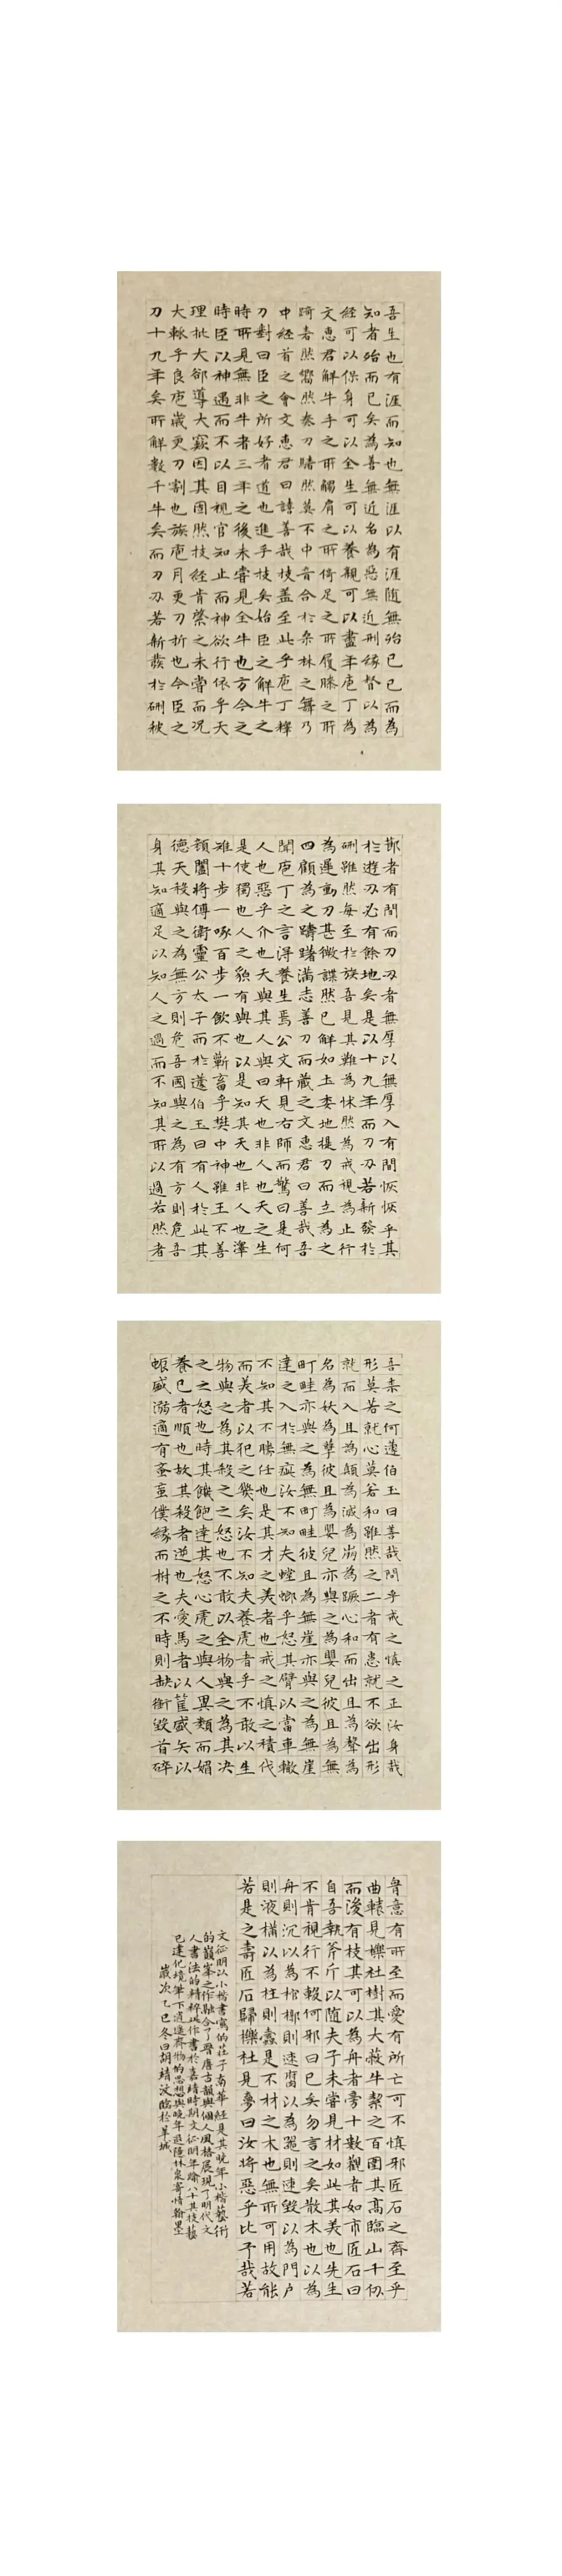 吾生也有涯而知也無涯以有涯随無殆已已而為
知者殆而已矣為善無近名為惡無近刑緣督以為
經可以保身可以全生可以養親可以盡年庖丁為
文惠君解牛手之所觸肩之所倚足之所履膝之所
踦砉然嚮然奏刀騞然莫不中音合於桑林之舞乃
中經首之會文惠君曰譆善哉技盖至此乎庖丁釋
刀對曰臣之所好者道也進乎技矣始臣之解牛之
時所見無非牛者三年之後未嘗見全牛也方今之
時臣以神遇而不以目視官知止而神欲行依乎天
理批大郤導大窾因其固然技經肯綮之未嘗而況
大軱乎良庖歲更刀割也族庖月更刀折也今臣之
刀十九年矣所解數千牛矣而刀刃若新發於硎彼
節者有間而刀刃者無厚以無厚入有間恢恢乎其
於遊刃必有餘地矣是以十九年而刀刃若新發於
硎雖然每至於族吾見其難為怵然為戒視為止行
為遲動刀甚微謋然已解如土委地提刀而立為之
四顧為之躊躇滿志善刀而藏之文惠君曰善哉吾
聞庖丁之言得養生焉公文軒見右師而驚曰是何
人也惡乎介也天與其人與曰天也非人也天之生
是使獨也人之貌有與也以是知其天也非人也澤
雉十步一啄百步一飲不蘄畜乎樊中神雖王不善
顏闔將傅衛靈公太子而於蘧伯玉曰有人於此其
德天殺與之為無方則危吾國與之為有方則危吾
身其知適足以知人之過而不知其所以過若然者
吾柰之何蘧伯玉曰善哉問乎戒之慎之正汝身哉
形莫若就心莫若和雖然之二者有患就不欲出形
就而入且為顛為滅為崩為蹶心和而出且為聲為
名為妖為孽彼且為嬰兒亦與之為嬰兒彼且為無
町畦亦與之為無町畦彼且為無崖亦與之為無崖
達之入於無疵汝不知夫螳螂乎怒其臂以當車轍
不知其不勝任也是其才之美者也戒之慎之積伐
而美者以犯之幾矣汝不知夫養虎者乎不敢以生
物與之為其殺之之怒也不敢以全物與之為其決
之之怒也時其饑飽達其怒心虎之與人異類而媚
養已者順也故其殺者逆也夫愛馬者以筐盛矢以
蜄盛溺適有蚤䖟僕緣而柎之不時則缺銜毀首碎
胷意有所至而愛有所亡可不慎邪匠石之齊至乎
曲轅見櫟社樹其大蔽牛絜之百圍其高臨山千仞
而後有枝其可以為舟者旁十數觀者如市匠石曰
自吾執斧斤以随夫子未嘗見材如此其美也先生
不肯視行不輟何邪曰已矣勿言之矣散木也以為
舟則沉以為棺槨則速腐以為器則速毀以為門户
則液樠以為柱則蠹是不材之木也無所可用故能
若是之壽匠石歸櫟社見夢曰汝將惡乎比予哉若
文征明以小楷書寫的莊子南華經是其晚年小楷藝術
的巔峯之作融合了晋唐古韻與個人風格展現了明代文
人書法的精粹此作書於嘉靖時期文征明年踰八十其技藝
已達化境筆下逍遥齊物的思想與晚年退隱林泉寄情翰墨
歲次乙巳冬日胡靖波臨於羊城